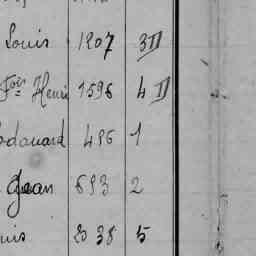 Louis 1207 3 D
Fois Henri 1596 4 D
Edouard 496 1
Jean 693 2
uis 2538 5